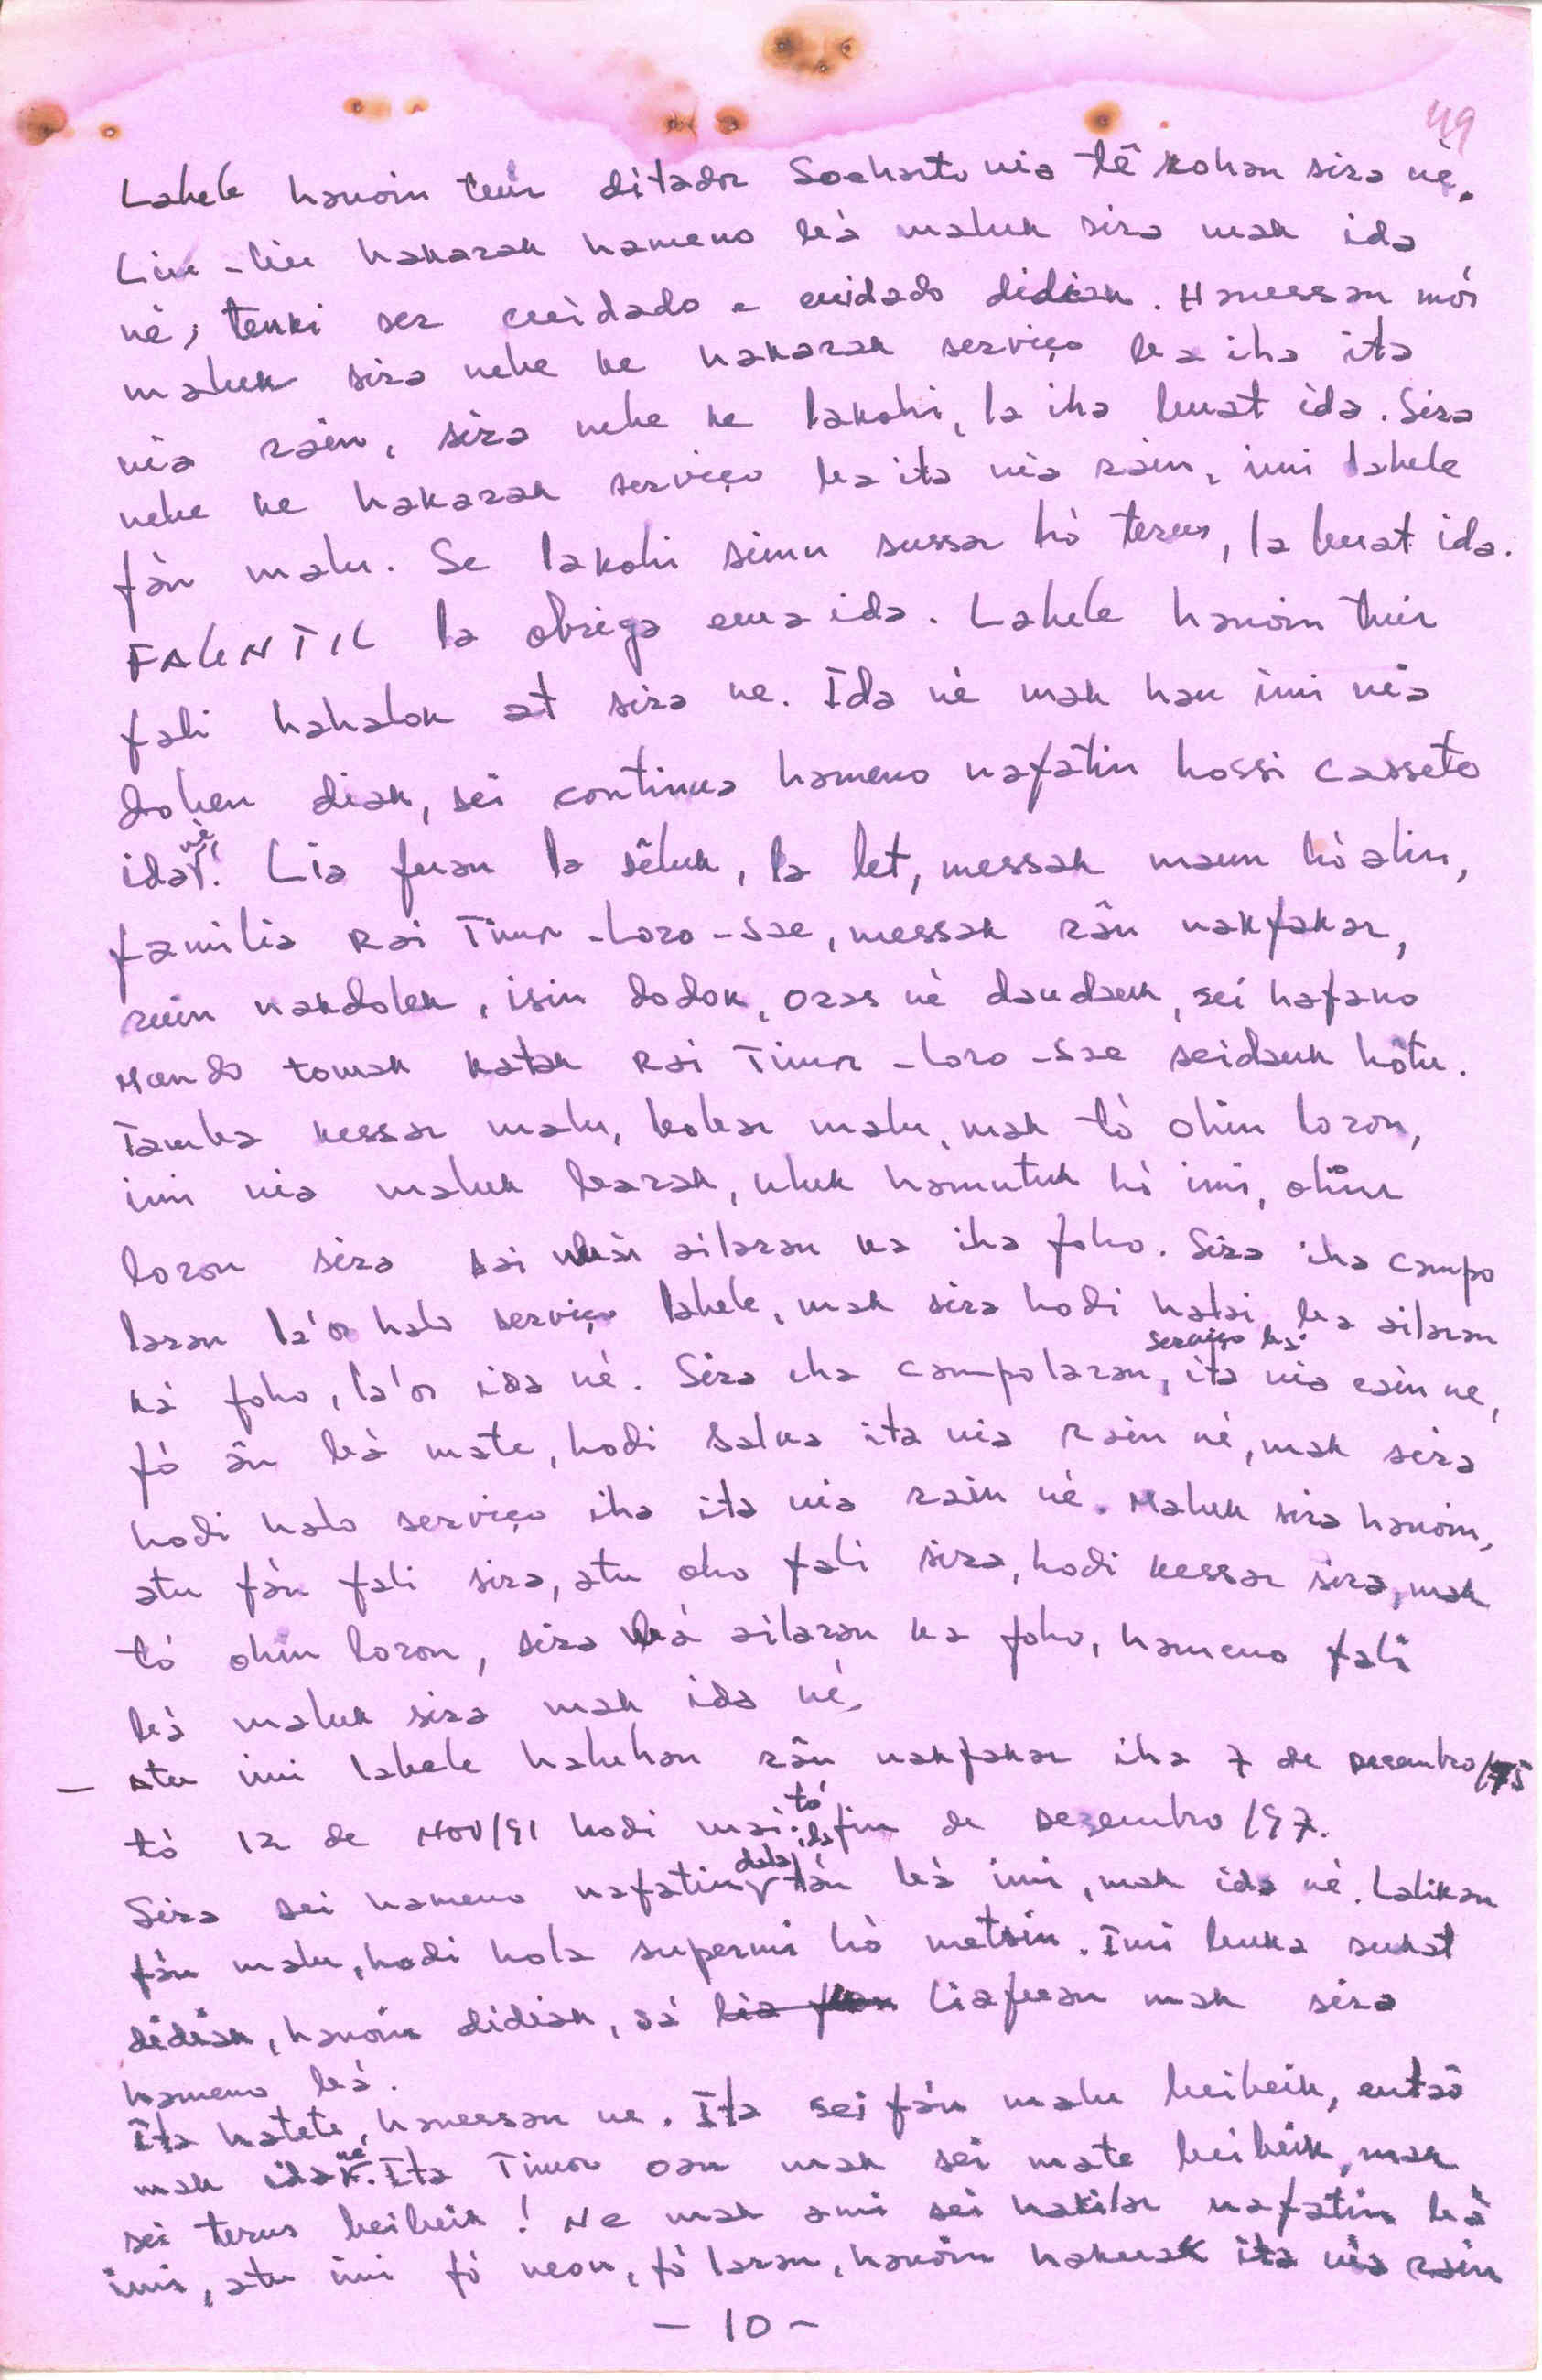 49
Labele hanoin tuir ditador Soeharto nia tê kohan sira nê.
Liu-liu hakarak hameno bà maluk sira mak ida
nè, tenki ser cuidado e cuidado didiak. Hanessan mós
maluk sira nebe ke hakarak serviço ba iha ita
nia rain, sira nebe ke lakohi, la iha buat ida. Sira
nebe ke hakarak serviço ba ita nia rain, imi labele
fàn malu. Se lakohi simu sussar hò terus, la buat ida.
FALINTIL la obriga ema ida. Labele hanoin tuir
fali hahalok at sira ne. Ida nè mak hau imi nia
doben diak, sei continua hameno nafatin hossi casseto
ida nè. Lia fuan la sêluk, la let, messak maun hò alin,
familia Rai Timor-Loro-Sae, messak rân nakfakar,
ruin nakdolek, isin dodok, oras nè daudauk, sei hafano
Mundo tomak katak Rai Timor-Loro-Sae seidauk hôtu.
Tamba kessar malu, bokar malu, mak tò ohin loron,
imi nia maluk barak, uluk hamutuk hò imi, ohin
loron sira sai bà ailaran ka iha foho. Sira iha campo
laran la'os halo serviço labele, mak sira hodi halai ba ailaran
ká foho, la'os ida né. Sira iha campolaran, serviço bà ita nia rain ne,
fó ân bà mate, hodi salva ita nia Rain né, mak sira
hodi halo serviço iha ita nia rain né. Maluk sira hanoin,
atu fàn fali sira, atu oho fali sira, hodi kessar sira, mak
tó ohin loron, sira bá ailaran ka foho, hameno fali
bà maluk sira mak ida né,
- Atu imi labele haluhan rân nakfakar iha 7 de Desembro/75
tò 12 de NOV/91 hodi mai tó fin de Dezembro/97.
Sira sei hameno nafatin dala ida tán bà imi, mak ida nè. Lalikan
fán malu, hodi hola supermi hò metsin. Imi buka sukat
didiak, hanoin didiak, sá lia fuan liafuan mak sira
hameno bà.
Ita hatete, hanessan ne. Ita sei fán malu beibeik, então
mak ida ne. Ita Timor oan mak sei mate beibeik, mak
sei terus beibeik! Ne mak ami sei hakilar nafatin bà
imi, atu imi fó neon, fó laran, hanoin hakuak ita nia rain
- 10 -